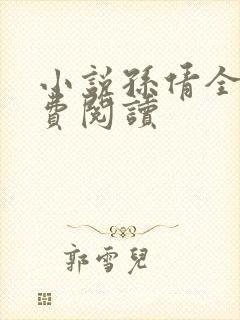 小説孫倩全
費閱讀
郭雪兒